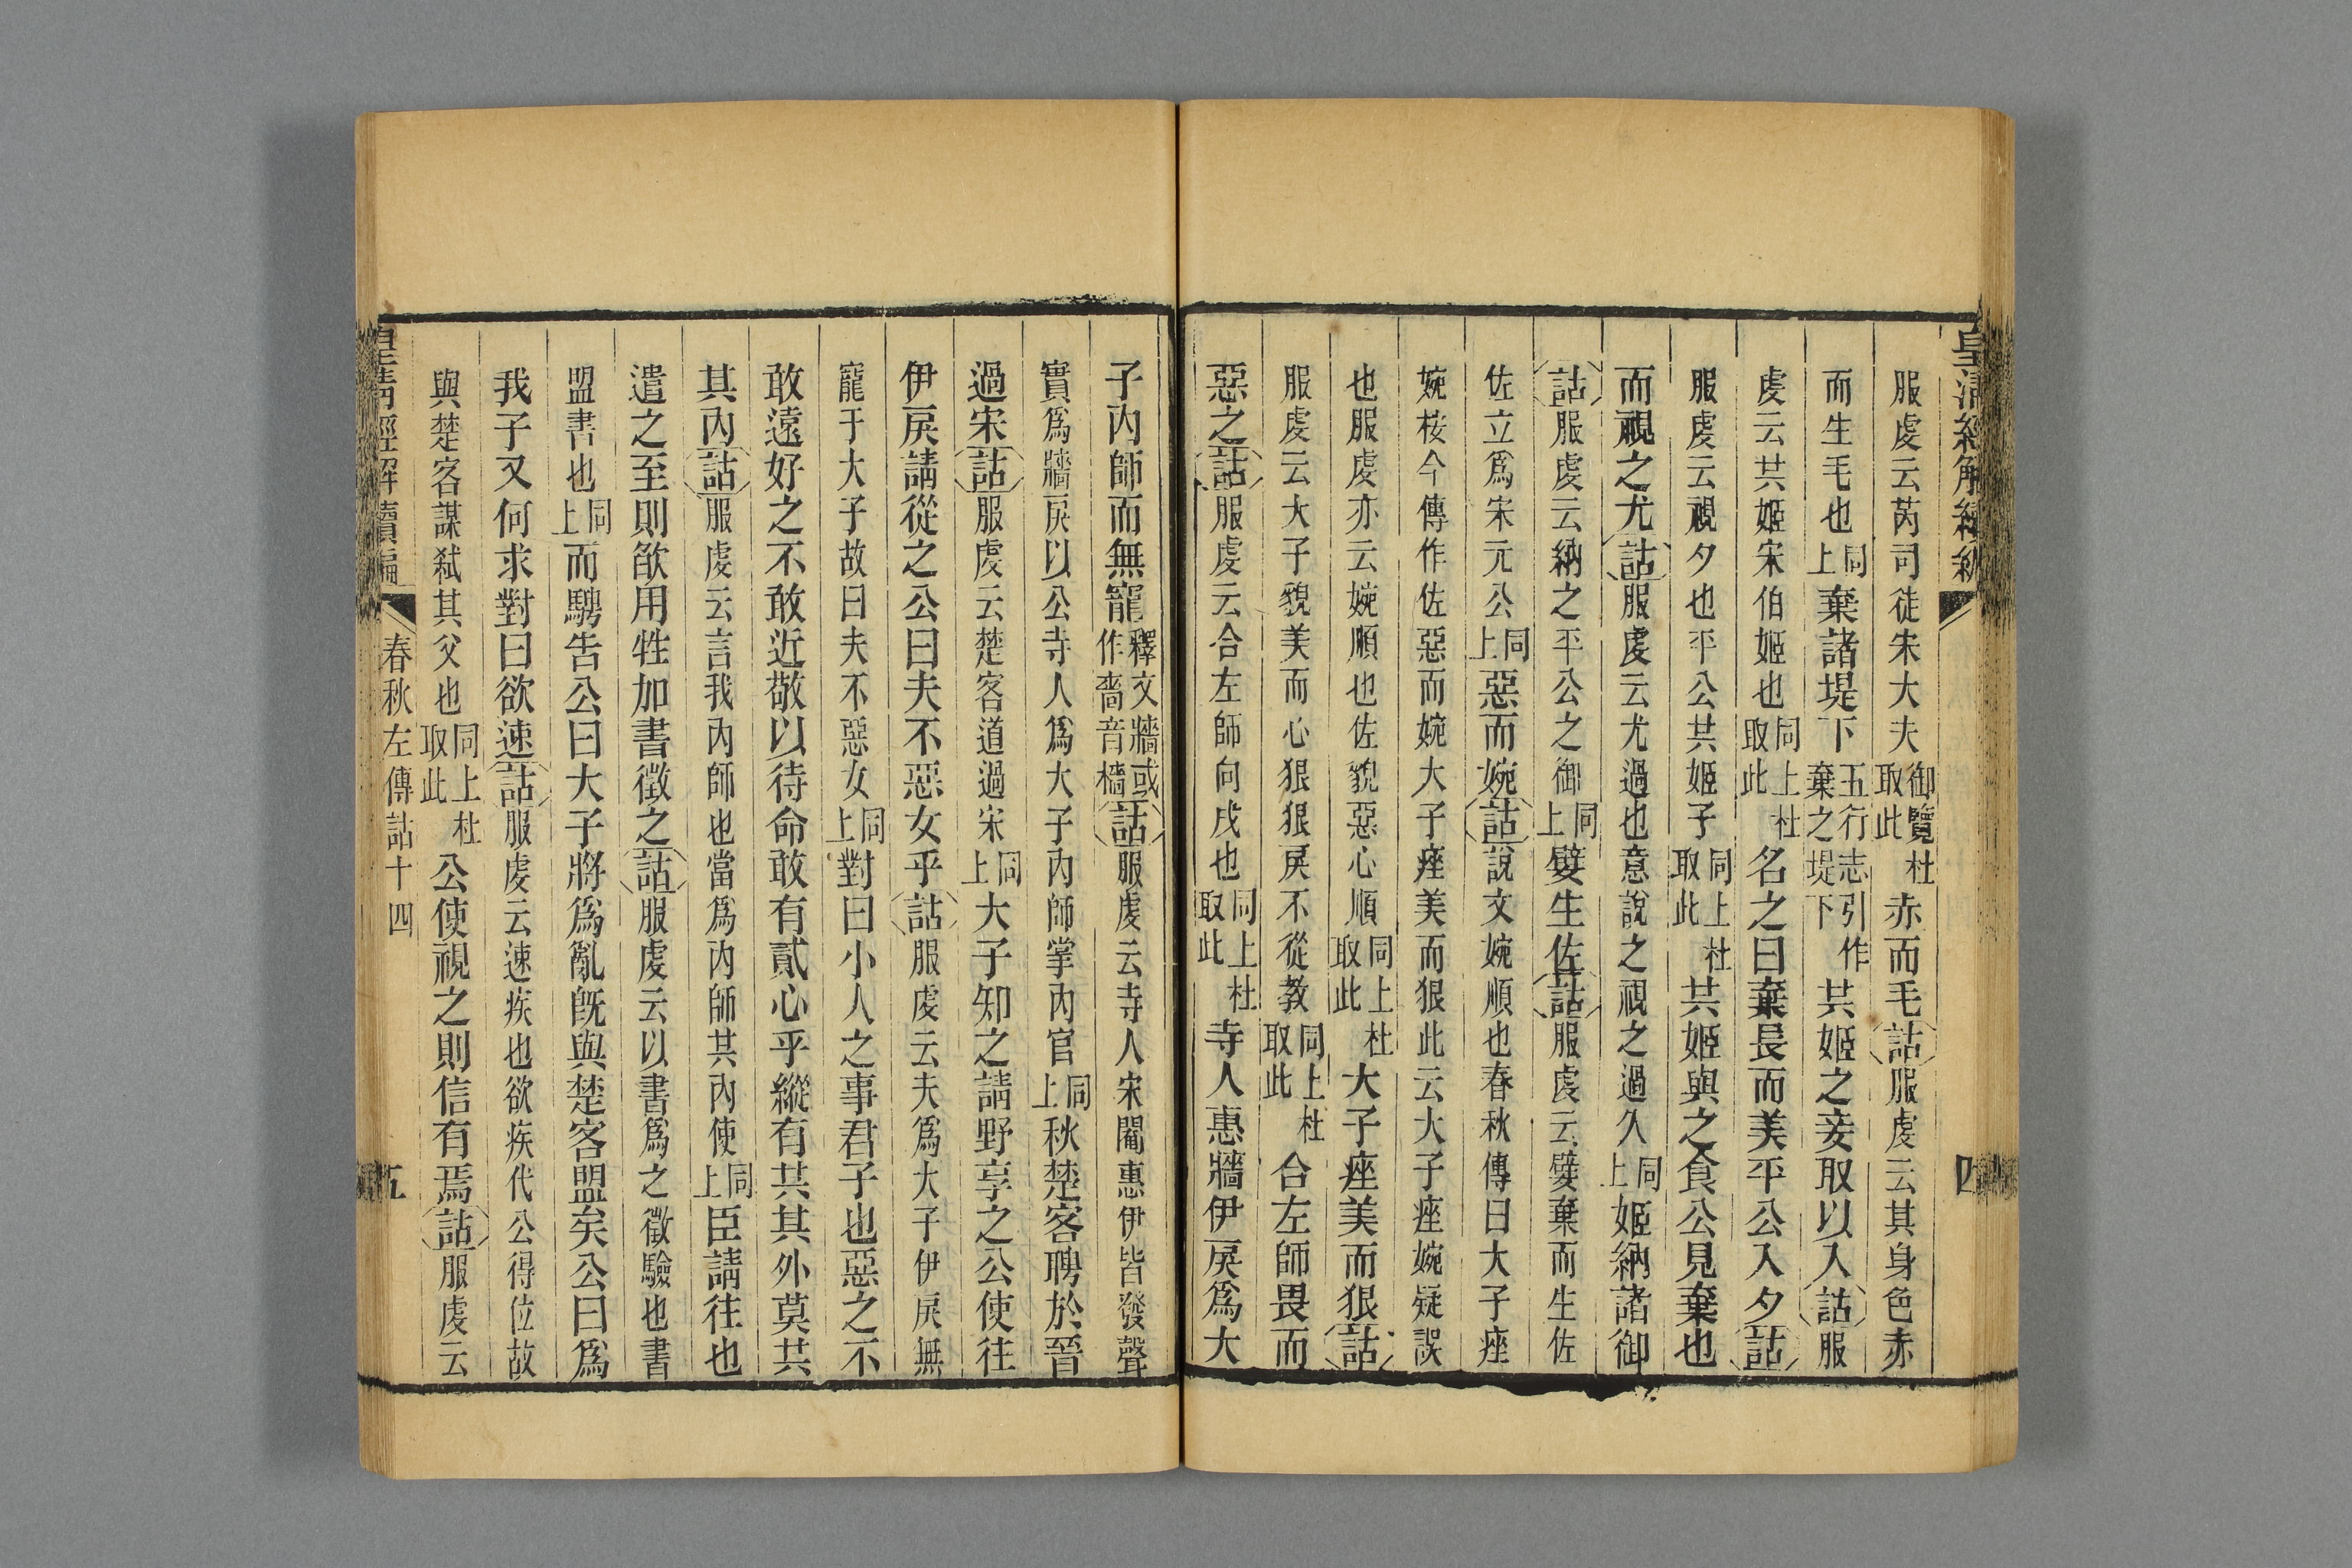 皇清經解續編
四
服虔云芮司徒朱大夫御覽杜取此赤而毛詁服虔云其身色赤
而生毛也同上棄諸堤下五行志引作棄之堤下共姬之妾取以入詁服
虔云共姬宋伯姬也同上杜取此名之曰棄長而美平公入夕詁
服虔云視夕也平公共姬子同上杜取此共姬與之食公見棄也
而視之尤詁服虔云尤過也意說之視之過久同上姬納諸御
詁服虔云納之平公之御同上嬖生佐詁服虔云嬖棄而生佐
佐立爲宋元公同上惡而婉詁說文婉順也春秋傳曰大子痤
婉桉今傳作佐惡而婉大子痤美而狠此云大子痤婉疑誤
也服虔亦云婉順也佐貌惡心順同上杜取此大子痤美而狠詁
服虔云大子貌美而心狠狠戾不從教同上杜取此合左師畏而
惡之詁服虔云合左師向戌也同上杜取此寺人惠牆伊戾爲大
子內師而無寵釋文牆或作嗇音檣詁服虔云寺人宋閹惠伊皆發聲
實爲牆戾以公寺人爲大子內師掌內官同上秋楚客聘於晉
過宋詁服虔云楚客道過宋同上大子知之請野享之公使往
伊戾請從之公曰夫不惡女乎詁服虔云夫爲大子伊戾無
寵于大子故曰夫不惡女同上對曰小人之事君子也惡之不
敢遠好之不敢近敬以待命敢有貳心乎縱有共其外莫共
其內詁服虔云言我內師也當爲內師其內使同上臣請往也
遣之至則欿用牲加書徵之詁服虔云以書爲之徵驗也書
盟書也同上而騁告公曰大子將爲亂既與楚客盟矣公曰爲
我子又何求對曰欲速詁服虔云速疾也欲疾代公得位故
與楚客謀弒其父也同上杜取此公使視之則信有焉詁服虔云
皇清經解續編
春秋左傳詁十四
五